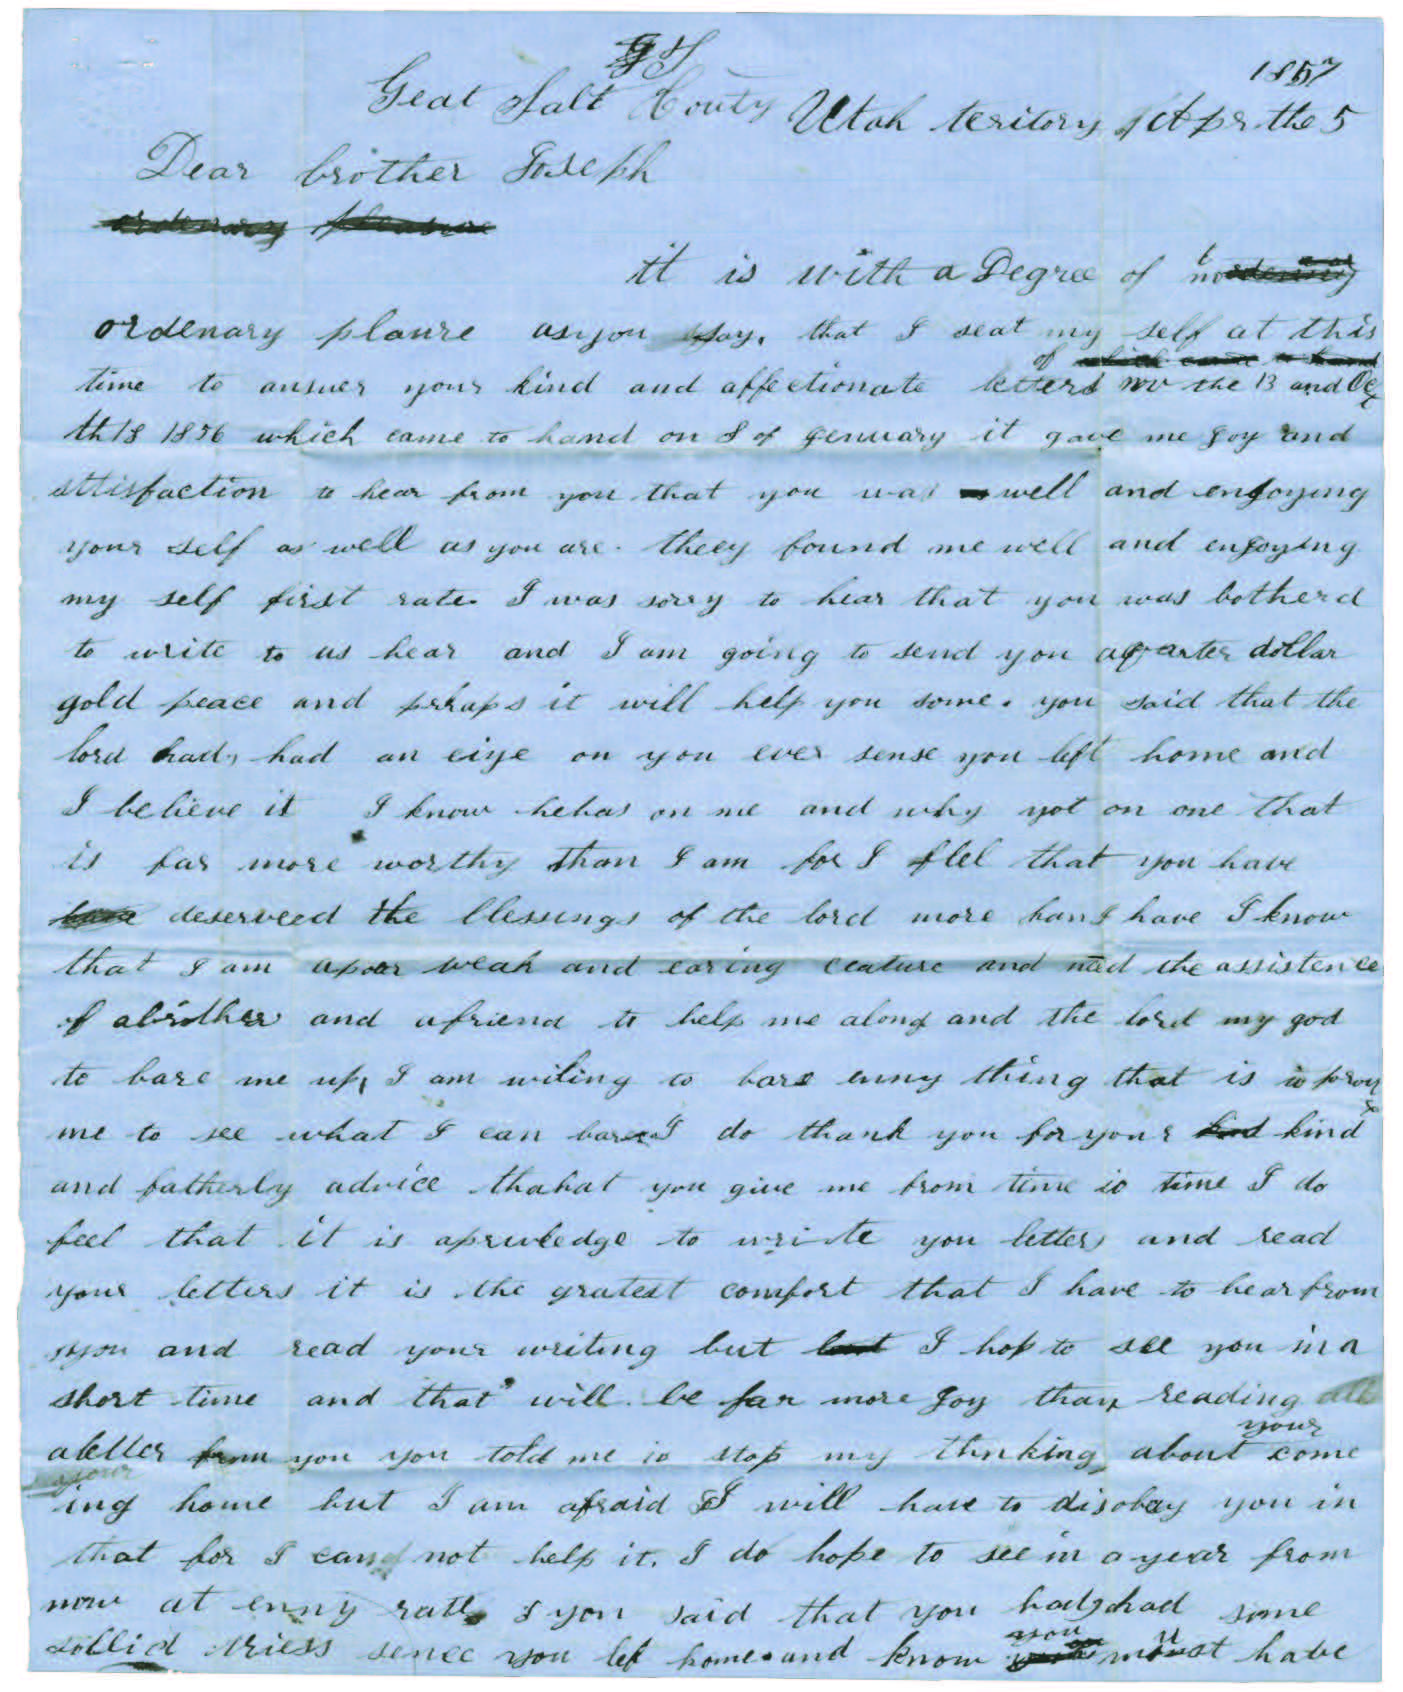 1857
Geat Salt Couty Utah teritory Apr. the 5
Dear brother Joseph
ordenary pleasure
it is with a Degree of no
ordenary plaure asyou say. that I seat my self at this
of which came to hand
time to ansuer your kind and affectionate letters nov the 13 and Oc
th 18 1856 which came to hand on 8 of genuary it gave me joy and
sttisfaction to hear from you that you was well and enjoying
your self as well as you are. theey found me well and enjoying
my self first rate. I was sorry to hear that you was botherd
to write to us hear and I am going to send you aquarter dollar
gold peace and prhaps it will help you some. you said that the
lord had, had an eiye on you ever sense you left home and
I believe it I know hehas on me and why not on one that
is far more worthy than I am for I fell that you have
have deserveed the blessings of the lord more han I have I know
that I am apoor weak and earing ceature and need the assistence
of abrother and afriend to help me along and the lord my god
to bare me up, I am wiling to bare enny thing that is to prov
me to see what I can bare I do thank you for your kind kind
and fatherly advice thahat you give me from time to time I do
feel that it is apriveledge to write you letters and read
your letters it is the gratest comfort that I have to hear from
you and read your writing but but I hop to see you in a
short time and that will be far more joy than reading
aletter from you you told me to stop my thnking about your come
your
ing home but I am afraid I will have to disobay you in
that for I can not help it. I do hope to see in a year from
now at enny rate I you said that you had, had some
sollid triess senee you left home. and know you must have